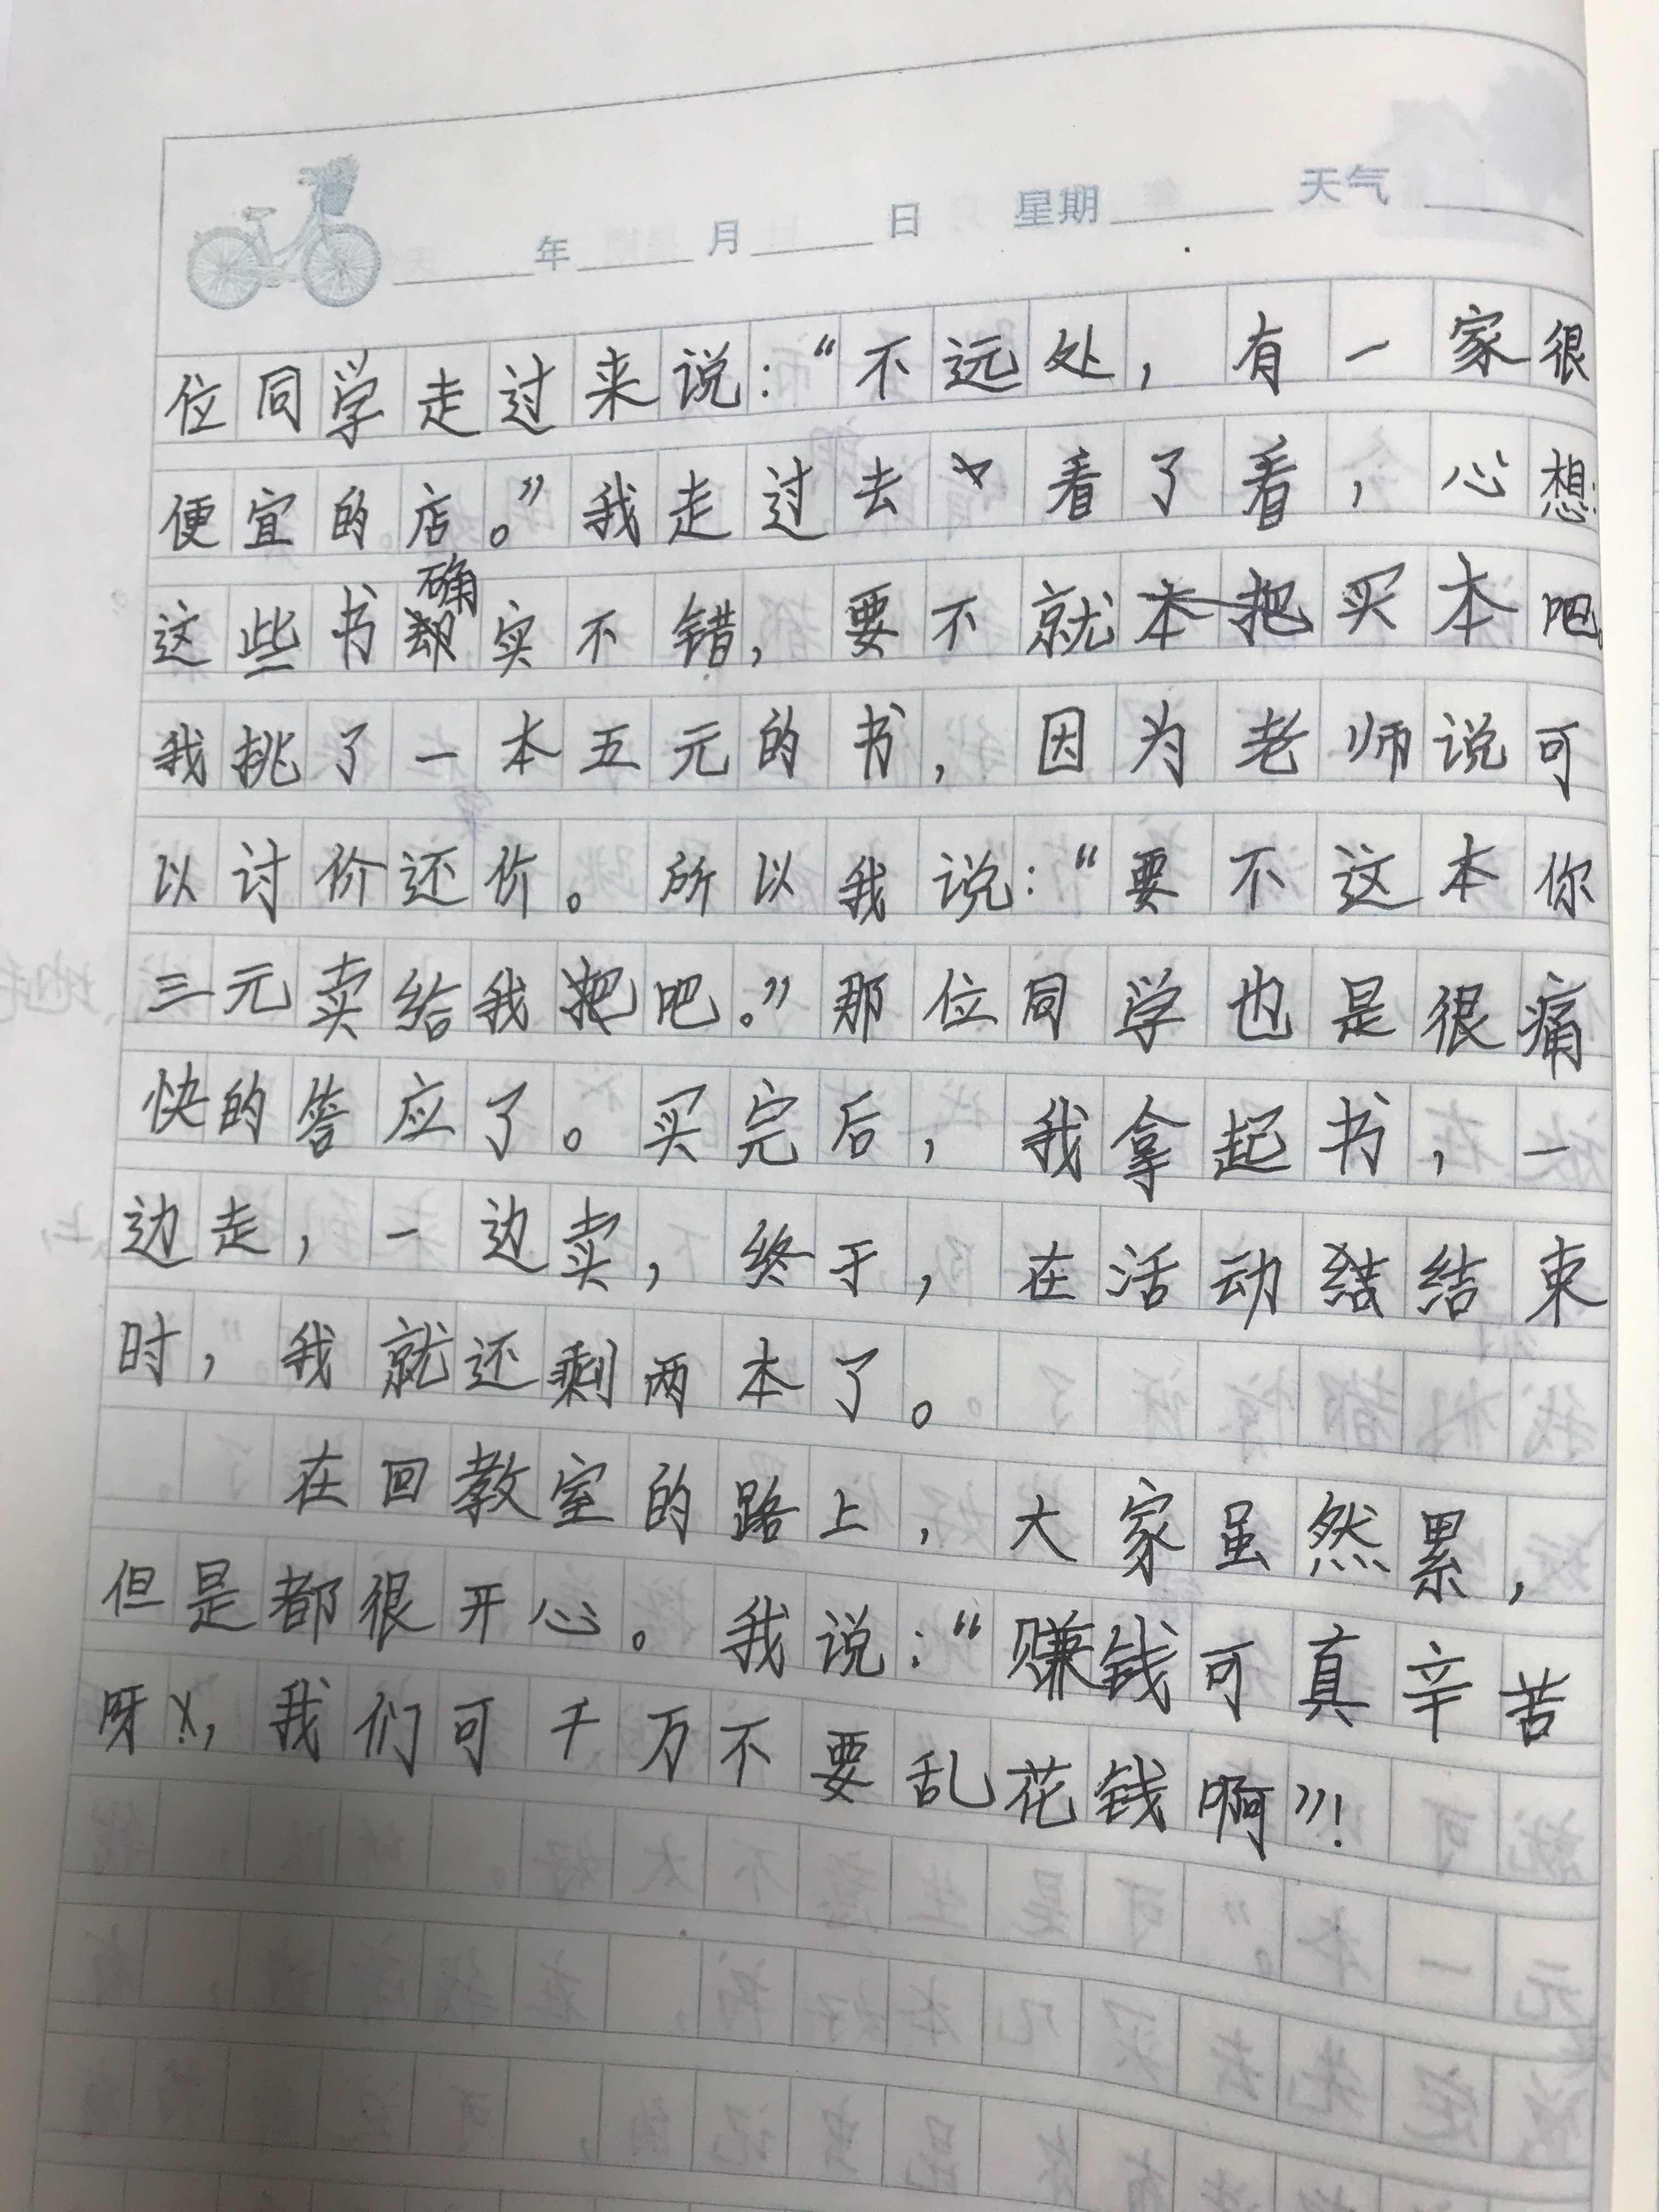 年 月 日 星期 天气
位同学走过来说：“不远处，有一家很
便宜的店。”我走过去看了看，心想：
这些书确实不错，要不就买本吧。
我挑了一本五元的书，因为老师说可
以讨价还价。所以我说：“要不这本你
三元卖给我吧。”那位同学也是很痛
快的答应了。买完后，我拿起书，一
边走，一边卖，终于，在活动结束
时，我就还剩两本了。
在回教室的路上，大家虽然累，
但是都很开心。我说：“赚钱可真辛苦
呀，我们可千万不要乱花钱啊”！